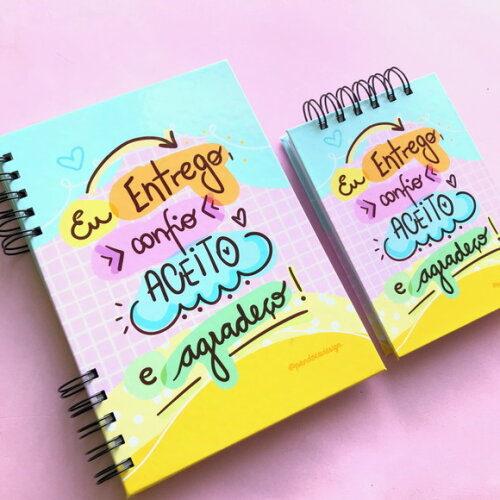 Eu Entrego,
confio
ACEITO
e agradeço!
@pandacadesign
Eu Entrego,
confio
ACEITO
e agradeço!